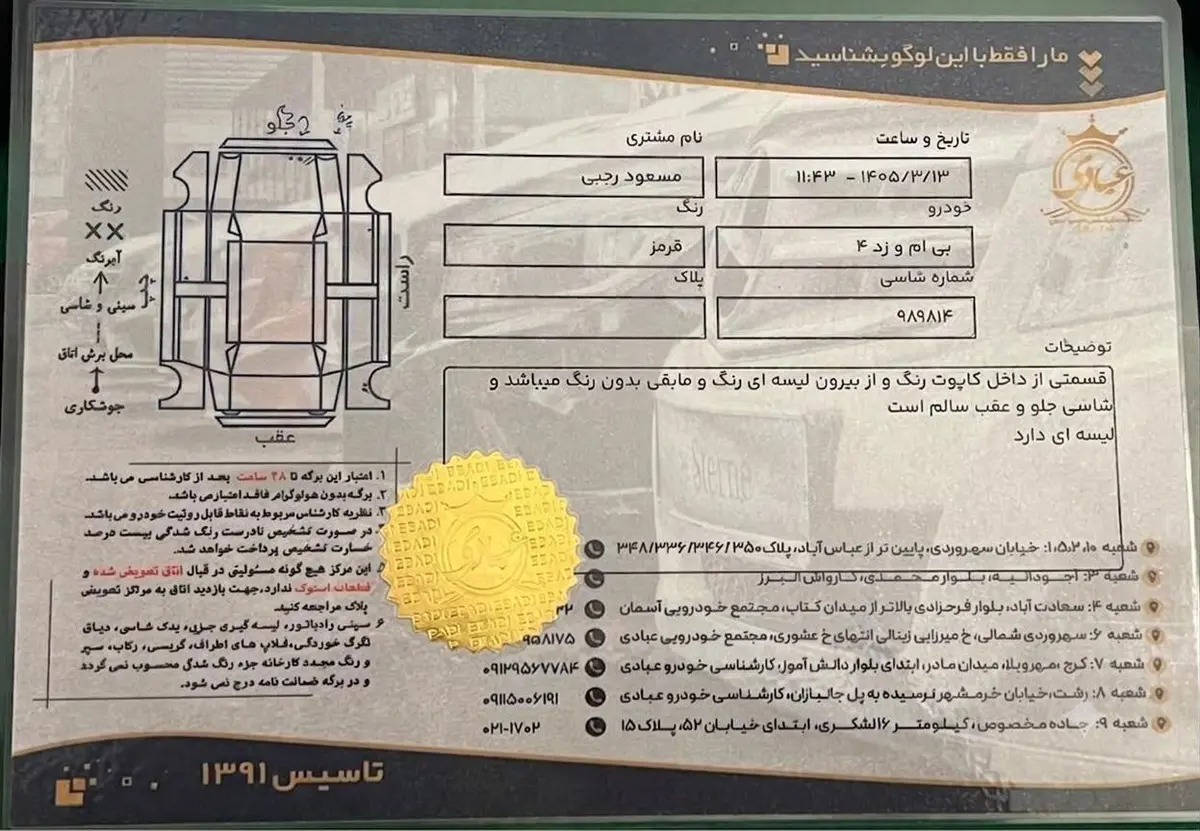 ما را فقط با این لوگو بشناسید
عبادی
تاریخ و ساعت
۱۴۰۵/۳/۱۳ - ۱۱:۴۳
نام مشتری
مسعود رجبی
خودرو
بی ام و زد ۴
رنگ
قرمز
شماره شاسی
۹۸۹۸۱۴
پلاک
توضیحات
قسمتی از داخل کاپوت رنگ و از بیرون لیسه ای رنگ و مابقی بدون رنگ میباشد و
شاسی جلو و عقب سالم است
لیسه ای دارد
جلو
راست
چپ
عقب
رنگ
آبرنگ
سینی و شاسی
محل برش اتاق
جوشکاری
۱. اعتبار این برگه تا ۴۸ ساعت بعد از کارشناسی می باشد.
۲. برگه بدون هولوگرام فاقد اعتبار می باشد.
۳. نظریه کارشناس مربوط به نقاط قابل روئیت خودرو می باشد.
در صورت تشخیص نادرست رنگ شدگی بیست درصد
خسارت تشخیص پرداخت خواهد شد.
این مرکز هیچ گونه مسئولیتی در قبال اتاق تعویض شده و
قطعات استوک ندارد، جهت بازدید اتاق به مراکز تعویض
پلاک مراجعه کنید.
۶. سینی رادیاتور، لیسه گیری جزیی، یدک شاسی، دیاق
تگرگ خوردگی، قلاب های اطراف، گریسی، رکاب، سپر
و رنگ مجدد کارخانه جزء رنگ شدگی محسوب نمی گردد
و در برگه ضمانت نامه درج نمی شود.
EBADI
عبادی
شعبه ۱،۵،۲،۱۰: خیابان سهروردی، پایین تر از عباس آباد، پلاک ۳۴۸/۳۳۶/۳۴۶/۳۵۰
شعبه ۳: اجودانیه، بلوار محمدی، کارواش البرز
شعبه ۴: سعادت آباد، بلوار فرحزادی بالاتر از میدان کتاب، مجتمع خودرویی آسمان
شعبه ۶: سهروردی شمالی، خ میرزایی زینالی انتهای خ عشوری، مجتمع خودرویی عبادی
۹۵۸۱۷۵
شعبه ۷: کرج، مهرویلا، میدان مادر، ابتدای بلوار دانش آموز، کارشناسی خودرو عبادی
۰۹۱۲۹۵۶۷۷۸۴
شعبه ۸: رشت، خیابان خرمشهر نرسیده به پل جانبازان، کارشناسی خودرو عبادی
۰۹۱۱۵۰۰۶۱۹۱
شعبه ۹: جاده مخصوص، کیلومتر ۱۶ لشکری، ابتدای خیابان ۵۲، پلاک ۱۵
۰۲۱-۱۷۰۲
تاسیس ۱۳۹۱